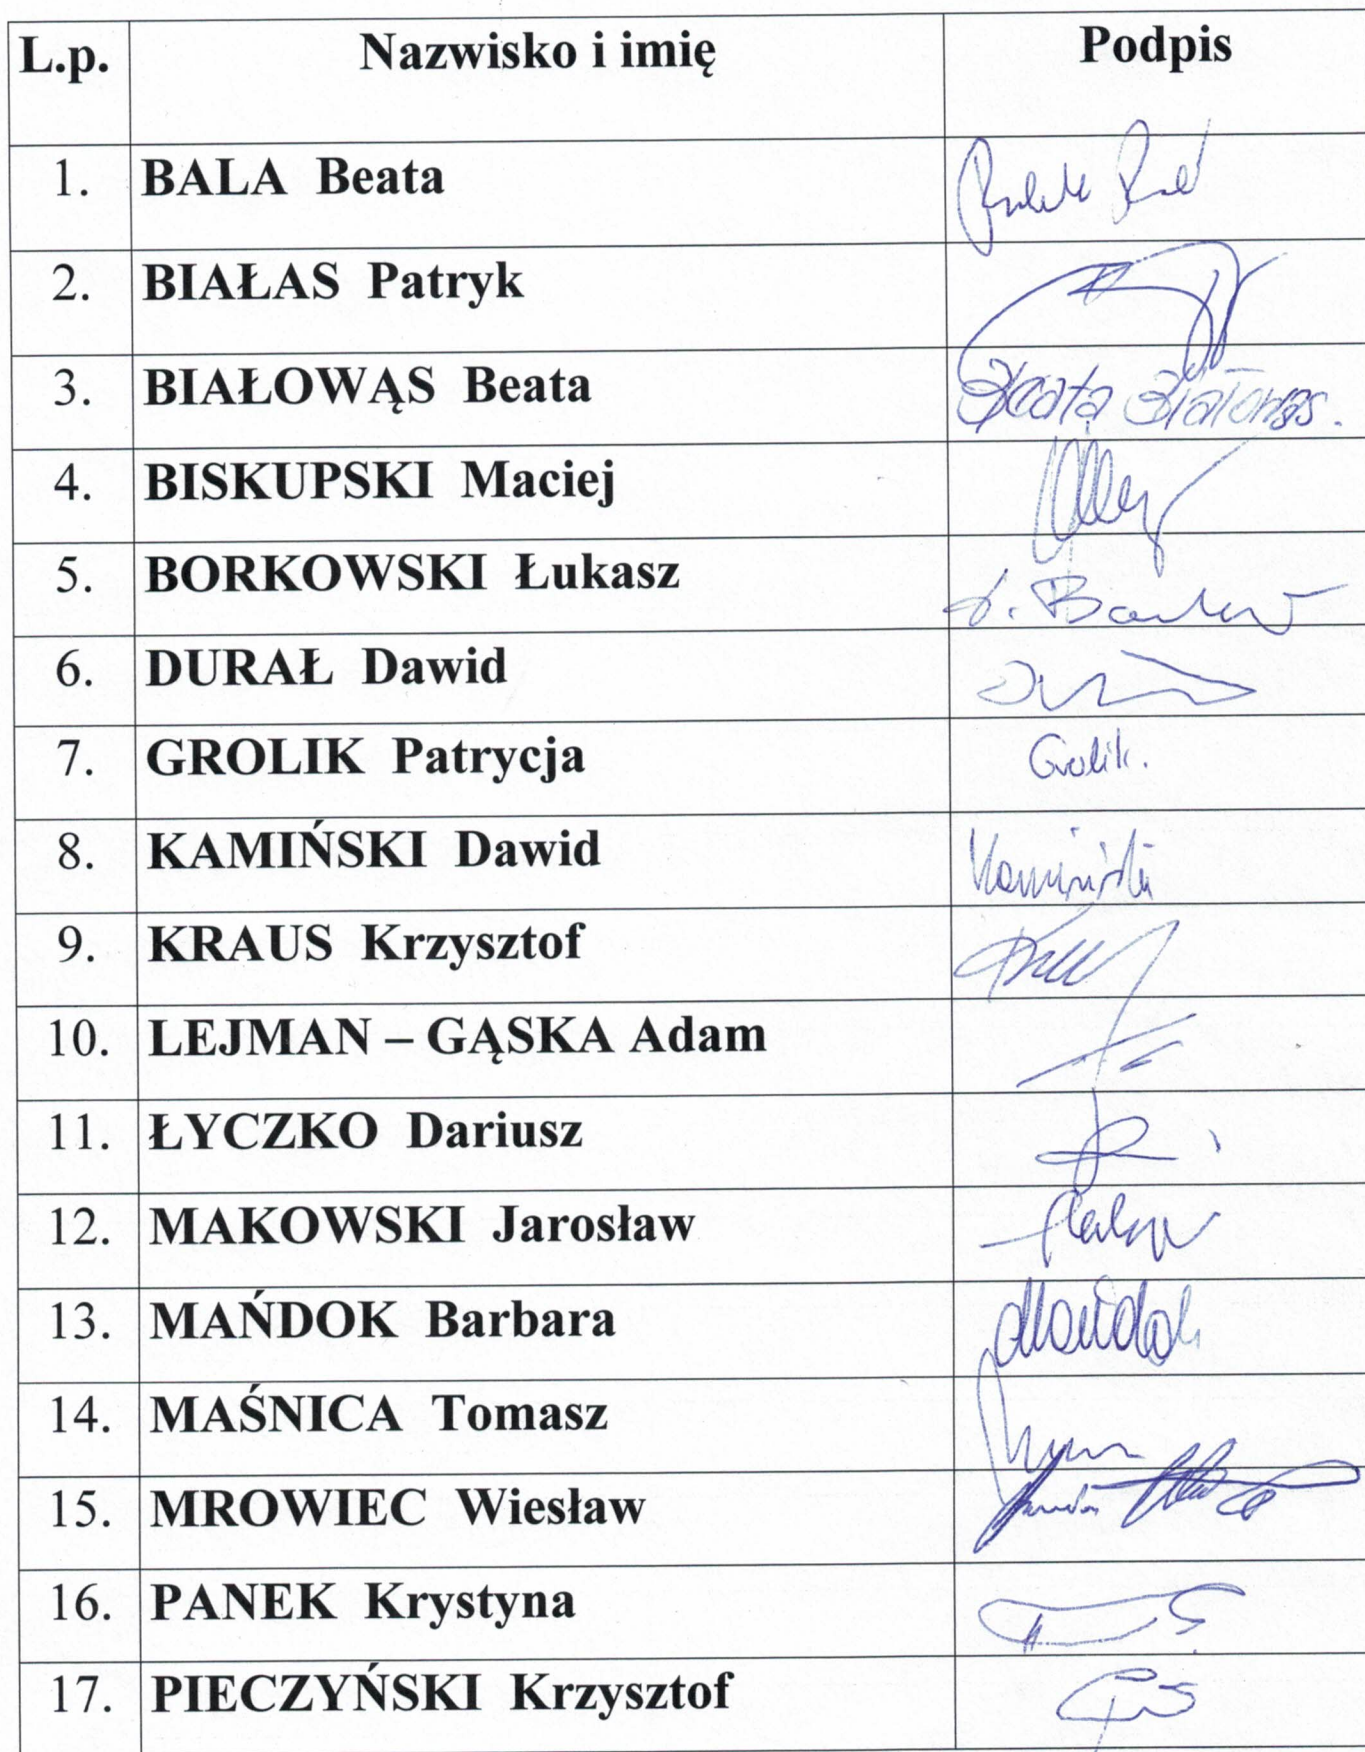 L.p. Nazwisko i imię Podpis
1. BALA Beata
2. BIAŁAS Patryk
3. BIAŁOWĄS Beata Beata Białowąs.
4. BISKUPSKI Maciej
5. BORKOWSKI Łukasz
6. DURAŁ Dawid
7. GROLIK Patrycja Grolik.
8. KAMIŃSKI Dawid Kamiński
9. KRAUS Krzysztof
10. LEJMAN – GĄSKA Adam
11. ŁYCZKO Dariusz
12. MAKOWSKI Jarosław
13. MAŃDOK Barbara Mańdok
14. MAŚNICA Tomasz
15. MROWIEC Wiesław
16. PANEK Krystyna
17. PIECZYŃSKI Krzysztof